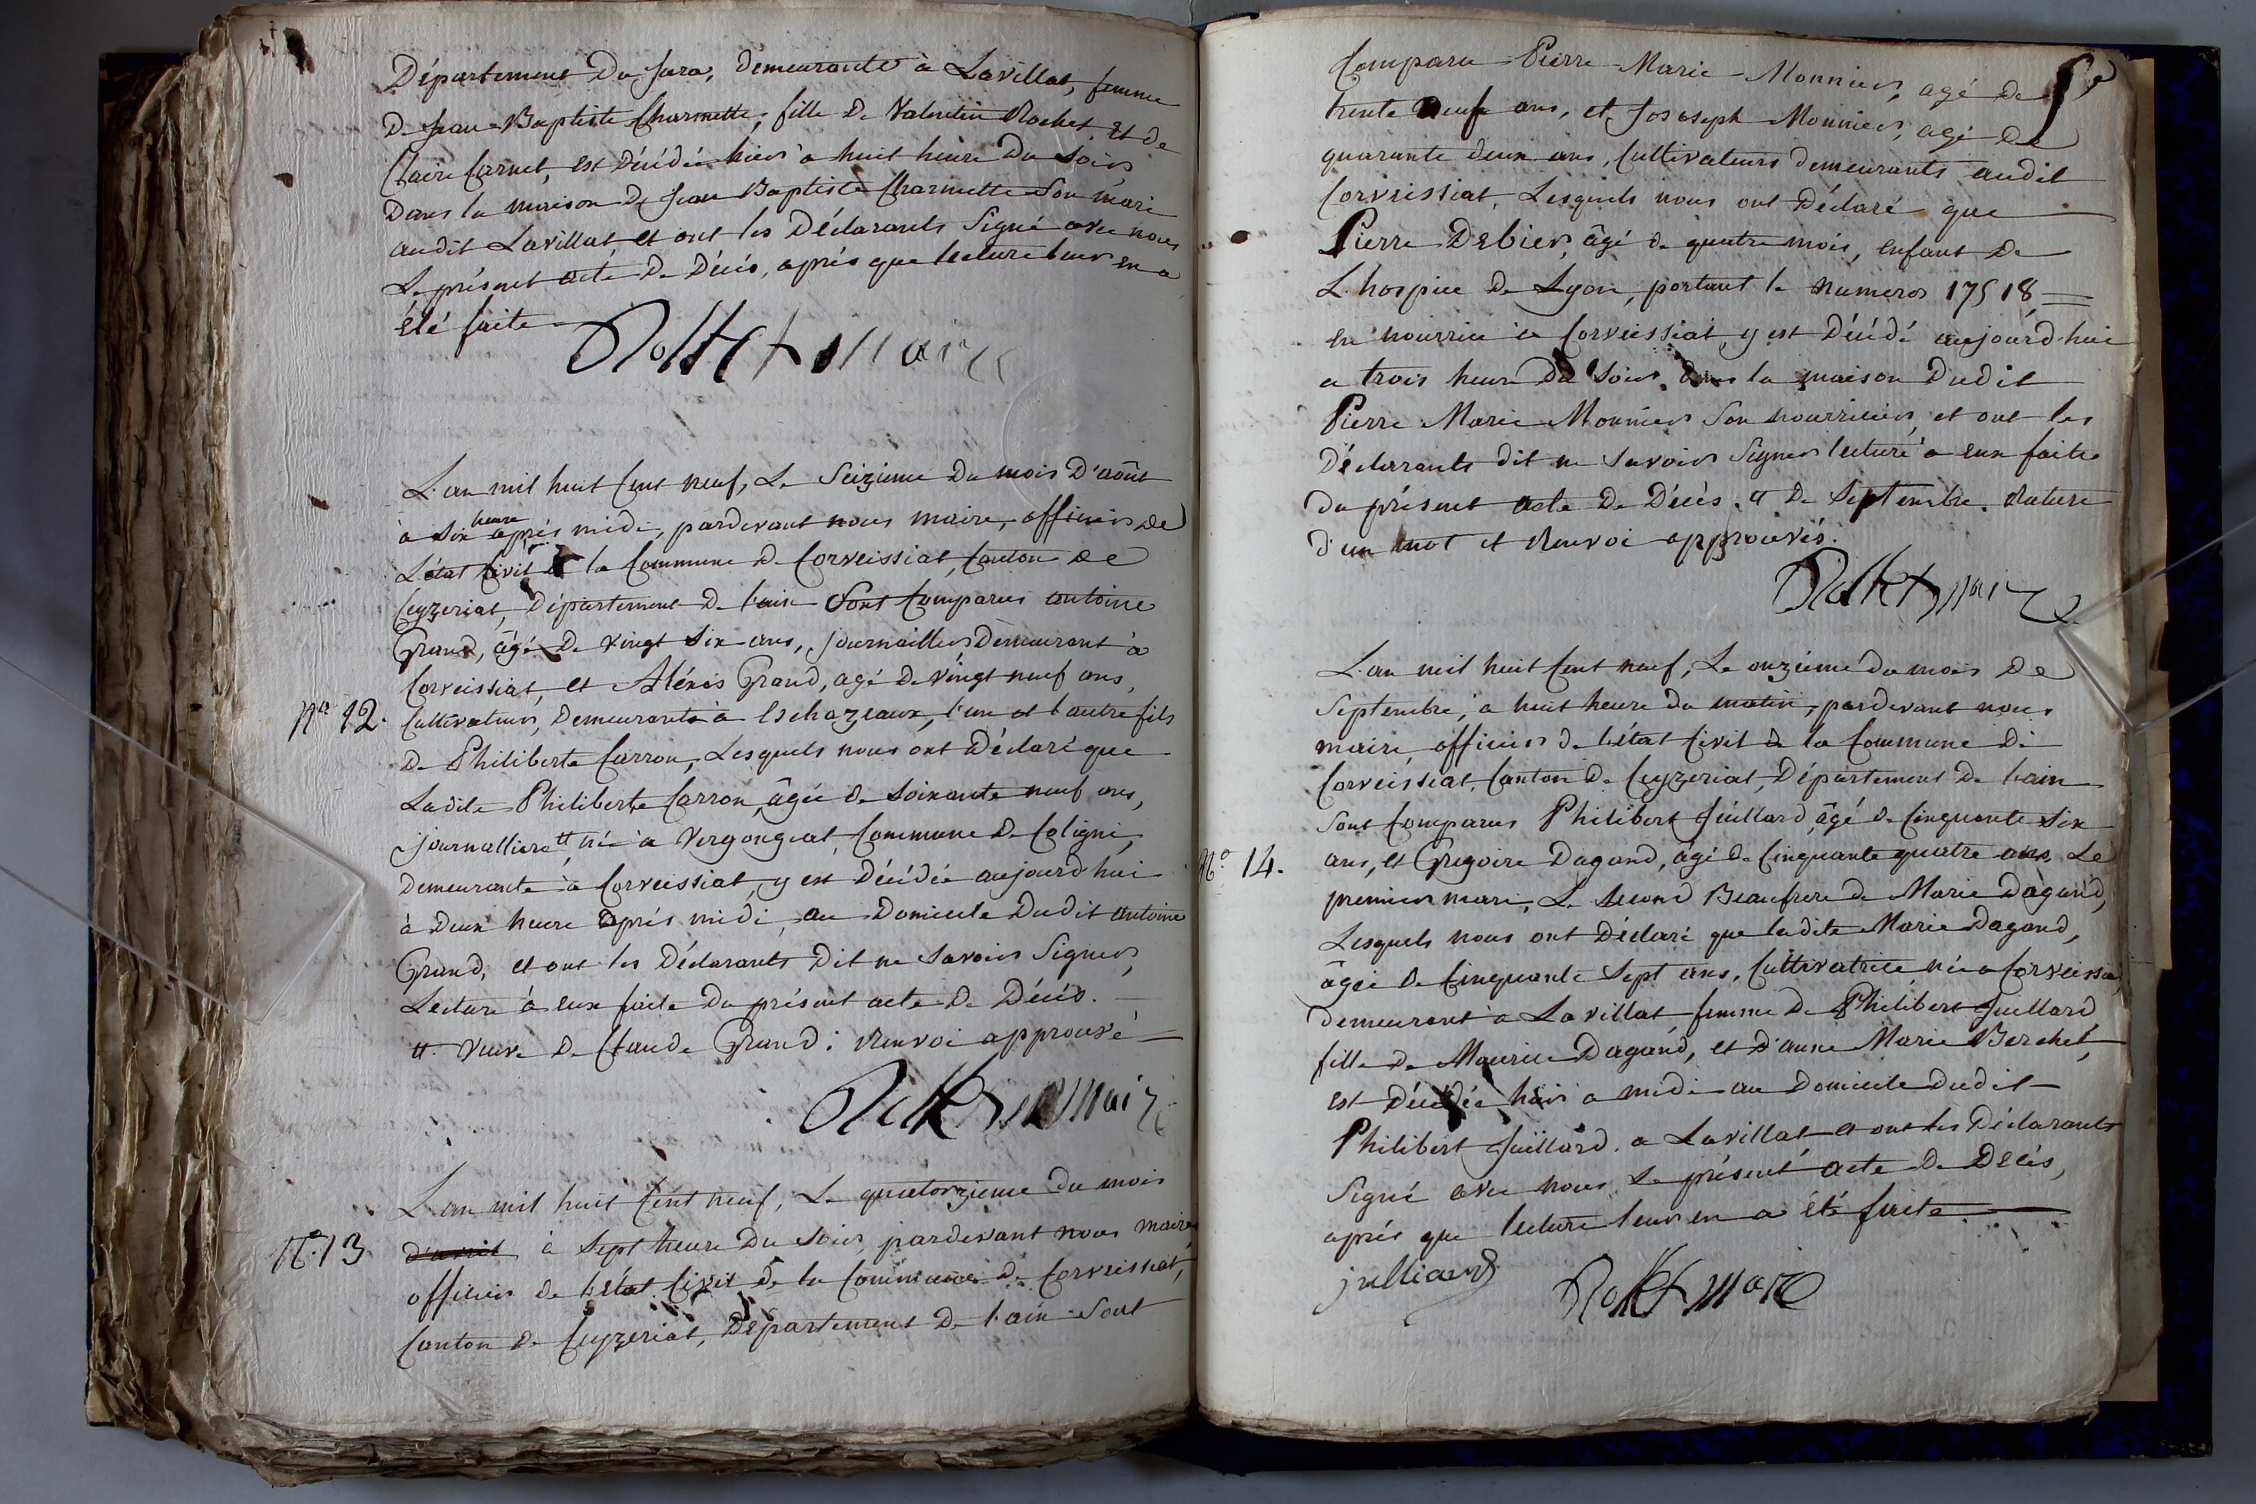 Département Du Jura, demeurante à Lavillat, femme
De Jean-Baptiste Charmette, fille De Valentin Rochet et de
Claire Carnet, est Décédée hier à huit heure Du Soir
Dans la maison De Jean Baptiste Charmette Son mari
audit Lavillat et ont les Déclarants Signé avec nous
Le présent acte De Décés, aprés que lecture leur en a
été faite
maire
L'an mil huit Cent neuf, Le Seizieme Du mois D'août
à Six heure aprés midi, pardevant nous maire, officier de
L'état Civil de la Commune de Corveissiat, Canton de
Ceyzeriat, Département De l'ain Sont Comparus antoine
Grand, âgé De vingt Six ans, journaillier Demeurant à
Corveissiat, et Aléxis Grand, agé De vingt neuf ans,
No 12. Cultivateur, Demeurants à Eschazeaux, l'un et l'autre fils
De Philiberte Carron, Lesquels nous ont Déclaré que
Ladite Philiberte Carron, âgée de Soixante neuf ans,
journalliere # née à Vergongeat, Commune De Coligni,
Demeurante à Corveissiat, y est Décédée aujourd'hui
à Deux heure aprés midi, au Domicile Dudit antoine
Grand, et ont les Déclarants Dit ne Savoir Signer,
Lecture à eux faite Du présent acte De Décés.
# veuve De Claude Grand: Renvoi approuvé
maire
L'an mil huit Cent neuf, Le quatorzieme du mois
No 13 d'avril à Sept heure Du Soir, pardevant nous maire,
officier de l'état Civil de la Commune de Corveissiat,
Canton de Ceyzeriat, Département De l'ain Sont
Comparu Pierre-Marie-Monnier, agé de
trente neuf ans, et Jososeph Monnier, agé De
quarante deux ans, Cultivateurs demeurants audit
Corveissiat, Lesquels nous ont Déclaré que
Pierre Debier, âgé de quatre mois, enfant De
L'hospice de Lyon, portant le numeros 17518,
en nourrice à Corveissiat, y est Décédé aujourd'hui
a trois heure Du Soir, dans la maison Dudit
Pierre Marie Monnier Son nourricier, et ont les
Déclarants dit ne Savoir Signer lecture à eux faite
du présent acte De Décès. # De Septembre. Rature
d'un mot et Renvoi approuvés.
maire
L'an mil huit Cent neuf, Le onzieme du mois De
Septembre, a huit heure du matin, pardevant nous
maire, officier de l'état Civil de la Commune De
Corveissiat, Canton De Ceyzeriat, Département De l'ain
Sont Comparus Philibert Juillard, âgé de Cinquante Six
No 14. ans, et Gregoire Dagand, âgé de Cinquante quatre ans, Le
premier mari, Le Second Beaufrere de Marie Dagand,
Lesquels nous ont Déclaré que ladite Marie Dagand,
âgée de Cinquante Sept ans, Cultivatrice née a Corveissiat,
demeurant à Lavillat, femme De Philibert Juillard
fille De Maurice Dagand, et d'anne Marie Berchet,
est Décédée hier a midi au Domicile dudit
Philibert Juillard. a Lavillat et ont les Déclarants
Signé avec nous Le présent acte De Décès,
aprés que lecture leur en a été faite.
julliard maire